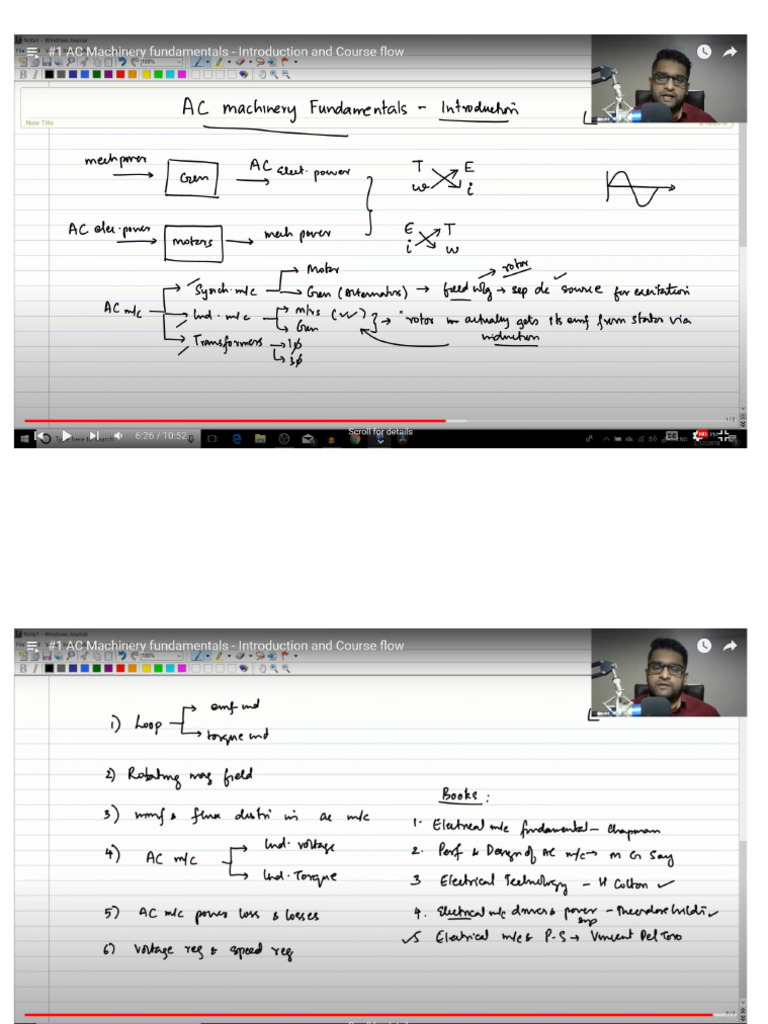 Note1 - Windows Journal
#1 AC Machinery fundamentals - Introduction and Course flow
AC machinery Fundamentals - Introduction
Note Title
mech power
Gen
AC elect. power
T E
w i
AC elec. power
motors
mech power
E T
i w
AC m/c
Synch. m/c
Motor
Gen (Alternators) → field wdg → sep dc source for excitation
rotor
Ind. m/c
mtrs
Gen
→ "rotor actually gets its emf from stator via
induction
Transformers → 1φ
3φ
6:26 / 10:52
Scroll for details
Note1 - Windows Journal
#1 AC Machinery fundamentals - Introduction and Course flow
1) Loop
emf ind
torque ind
2) Rotating mag field
3) mmf & flux distri in ac m/c
4) AC m/c
Ind. voltage
Ind. Torque
5) AC m/c power loss & losses
6) Voltage reg & speed reg
Books :
1. Electrical m/c fundamental - Chapman
2. Perf & Design of AC m/c → M G Say
3 Electrical Technology - H Cotton
4. Electrical m/c drives & power sup - Theodore Wildi
5 Electrical m/c & P.S → Vincent Del Toro